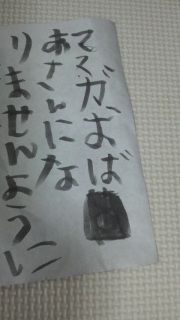 ママが、おば
あさんにな
りませんように